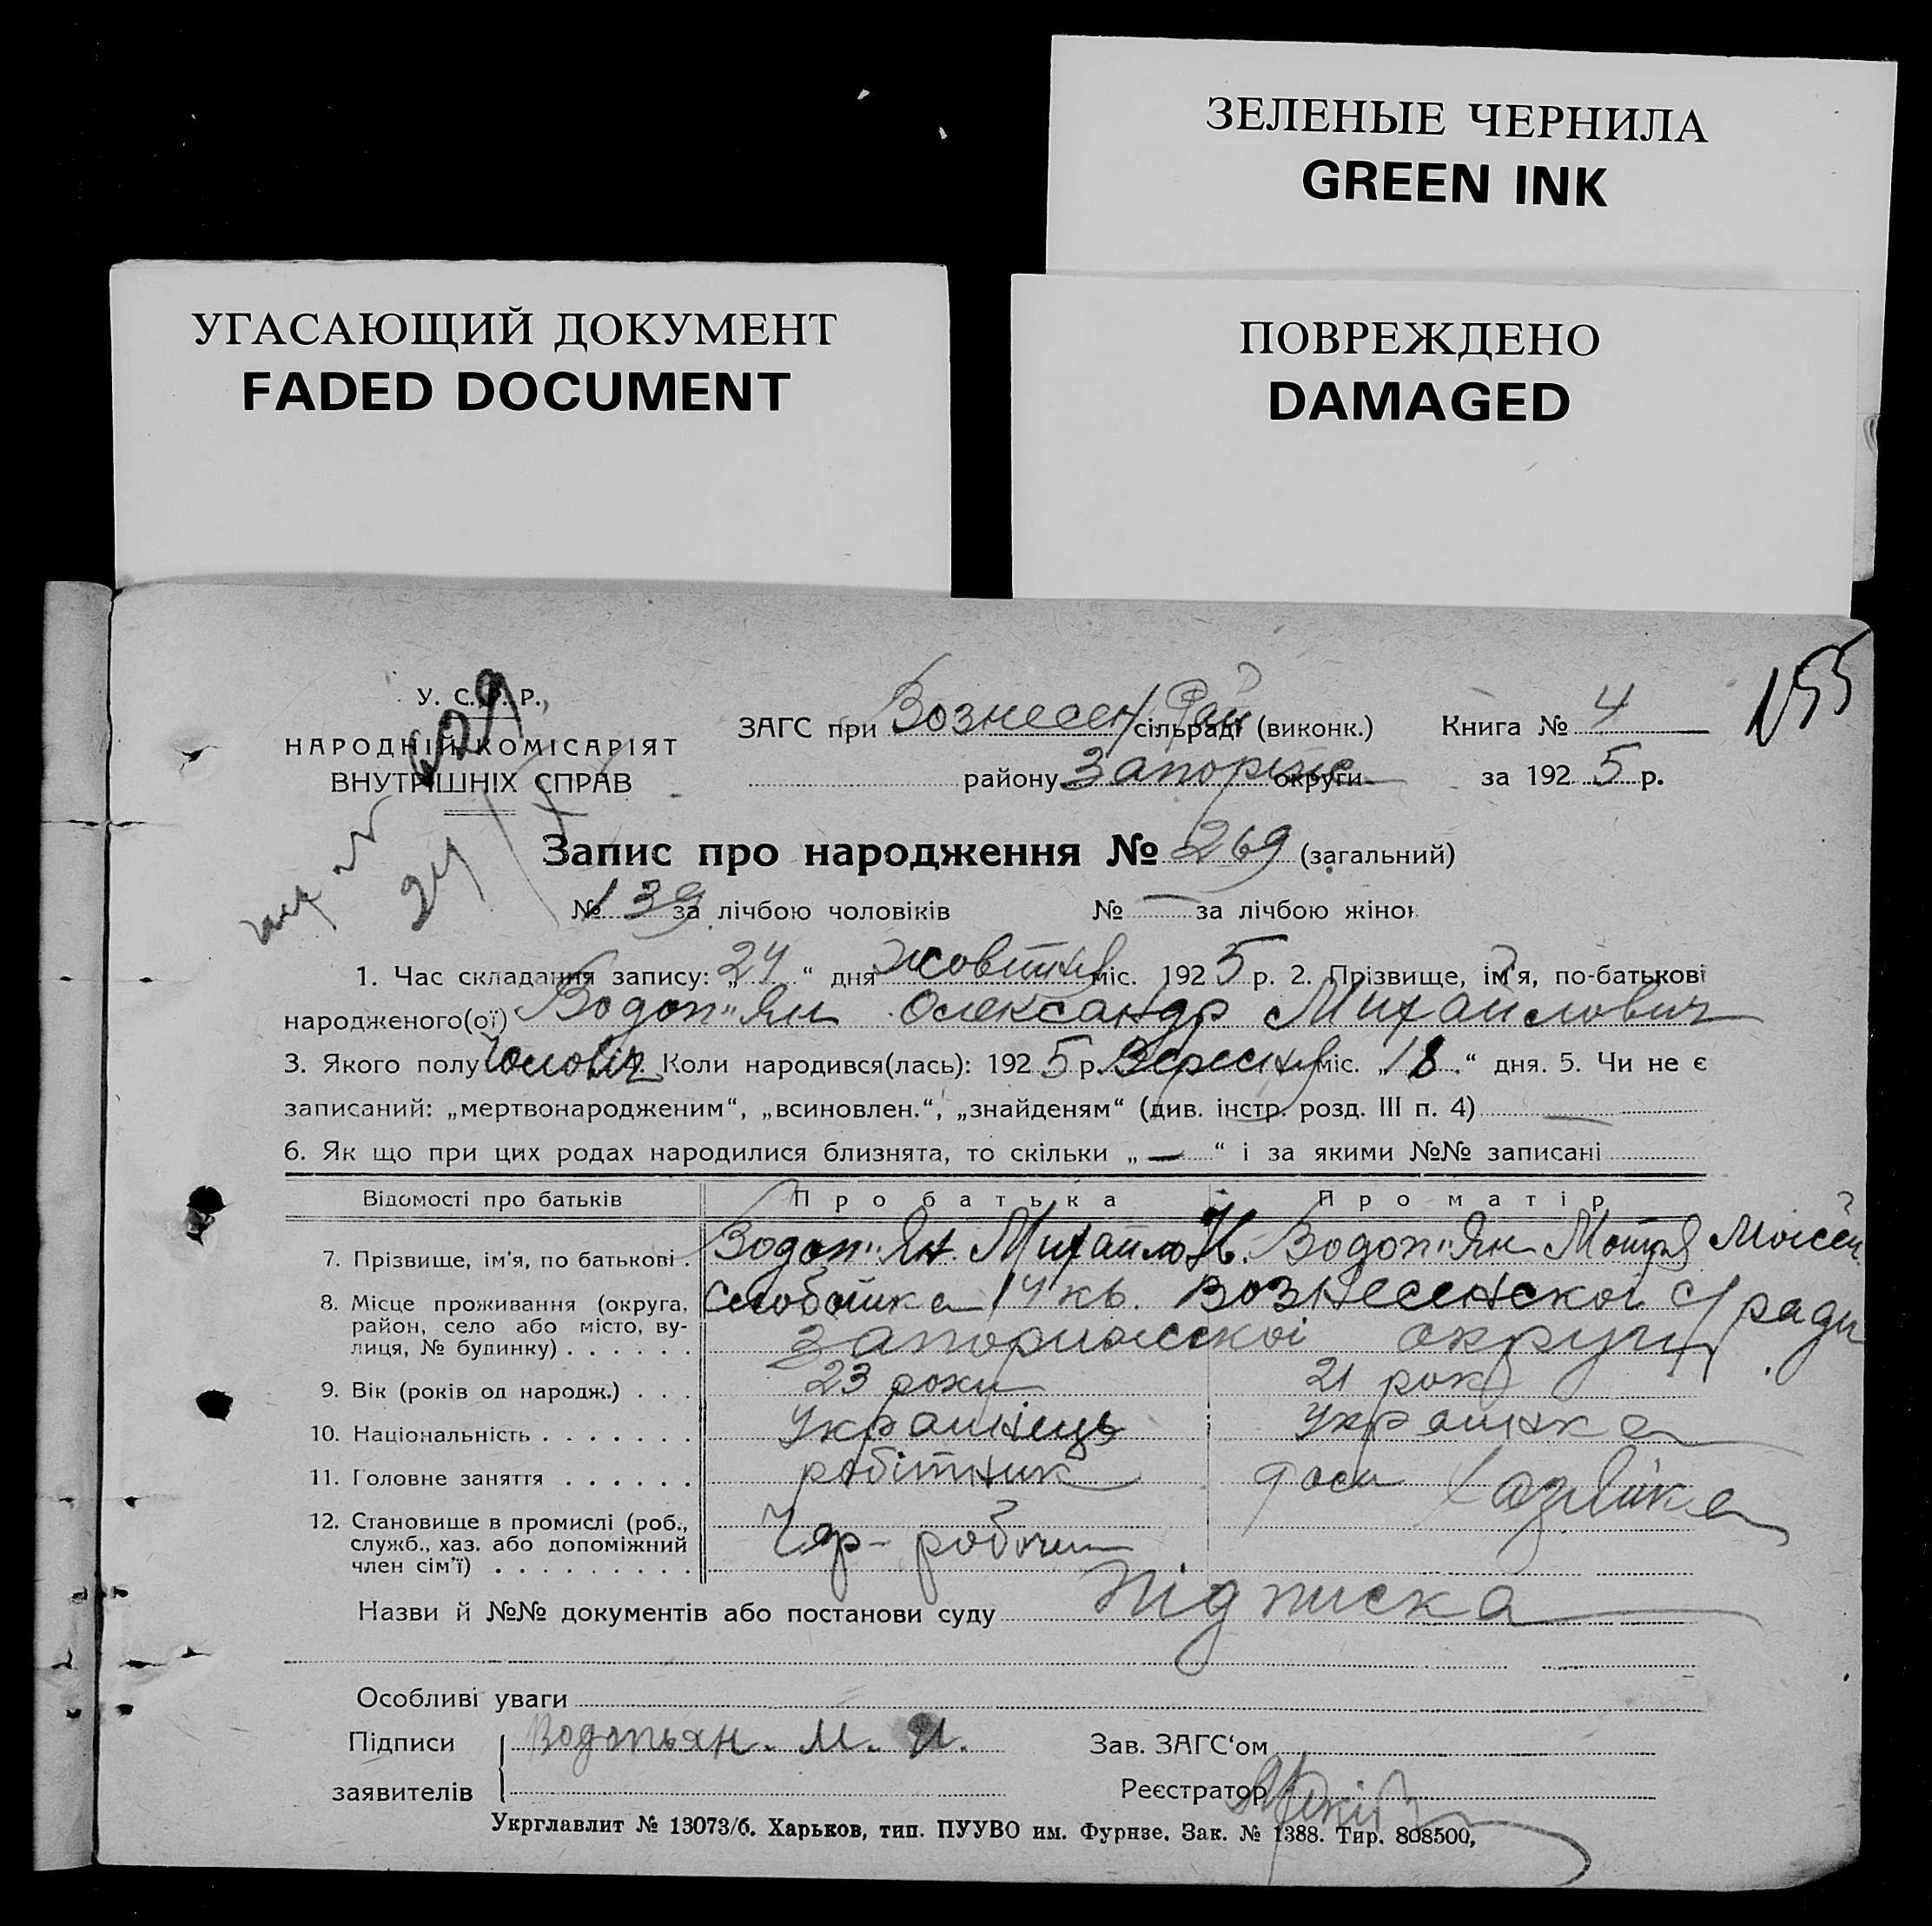 ЗЕЛЕНЫЕ ЧЕРНИЛА
GREEN INK
УГАСАЮЩИЙ ДОКУМЕНТ
FADED DOCUMENT
ПОВРЕЖДЕНО
DAMAGED
155
У. С. Р. Р.
НАРОДНІЙ КОМІСАРІЯТ
ВНУТРІШНІХ СПРАВ
ЗАГС при Вознесен сільраді (виконк.) Книга № 4
району Запоріж округи за 1925 р.
Запис про народження № 269 (загальний)
24
№ 139 за лічбою чоловіків № — за лічбою жінок
1. Час складання запису: „24“ дня жовтня міс. 1925 р. 2. Прізвище, ім'я, по-батькові
народженого(ої) Водоп"ян Олександр Михайлович
3. Якого полу Чоловіч 4. Коли народився(лась): 1925 р. Вересня міс. „18.“ дня. 5. Чи не є
записаний: „мертвонародженим“, „всиновлен.“, „знайденям“ (див. інстр. розд. III п. 4) —
6. Як що при цих родах народилися близнята, то скільки „—“ і за якими №№ записані
Відомості про батьків Про батька Про матір
7. Прізвище, ім'я, по батькові . Водоп"ян Михайло Водоп"ян Мотря Мойсеи
8. Місце проживання (округа, район, село або місто, вулиця, № будинку) . . . . . . Слободка 14 кв. Вознесенской с/ради
Запорижскоі округи
9. Вік (років од народж.) . . . 23 роки 21 рок
10. Національність . . . . . . . Українець Українка
11. Головне заняття . . . . . . робітник дом хазяйка
12. Становище в промислі (роб., служб., хаз. або допоміжний член сім'ї) . . . . . . . . . Чор-робочи
Назви й №№ документів або постанови суду Підписка
Особливі уваги
Підписи Водопьян. М. И. Зав. ЗАГС‘ом
заявителів Реєстратор
Укрглавлит № 13073/б. Харьков, тип. ПУУВО им. Фурнзе. Зак. № 1388. Тир. 808500,